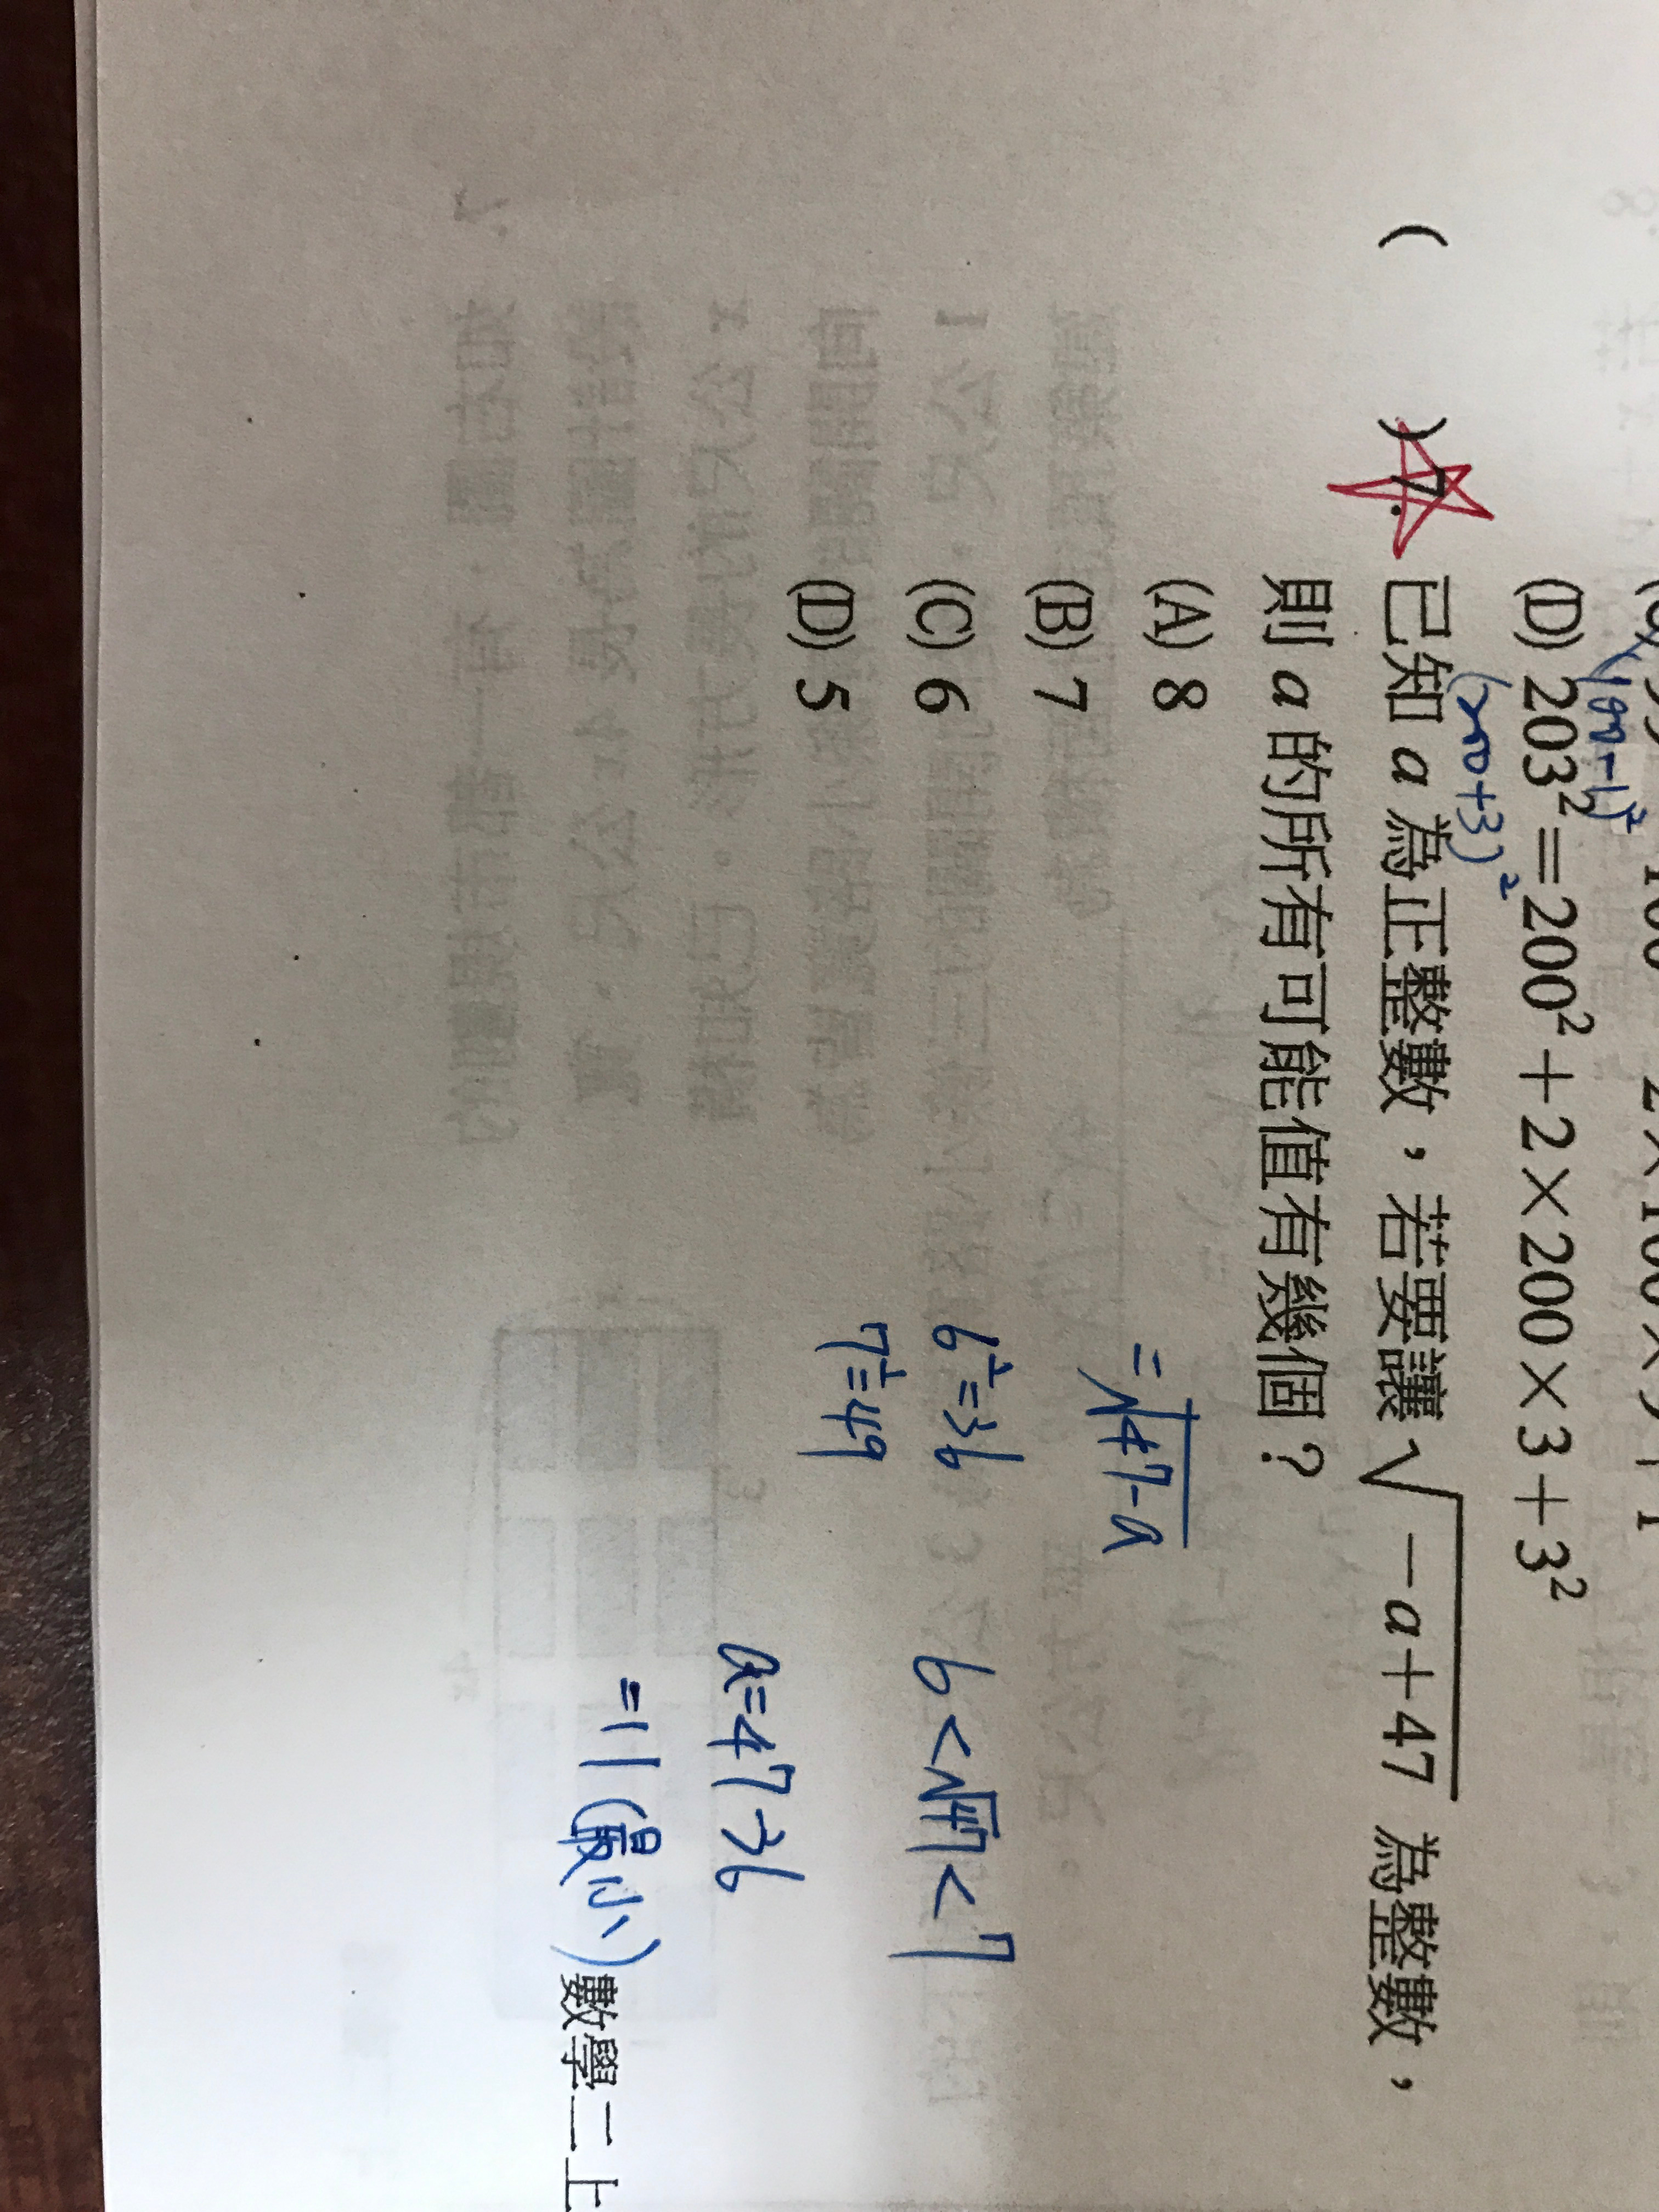 (100-1)²
(D) 203²=200²+2×200×3+3²
(200+3)²
( ) 7. 已知 a 為正整數，若要讓 √-a+47 為整數，
則 a 的所有可能值有幾個？
(A) 8
(B) 7
(C) 6
(D) 5
=√47-a
6²=36
7²=49
6<√47<7
a=47-36
=11(最小)
數學二上